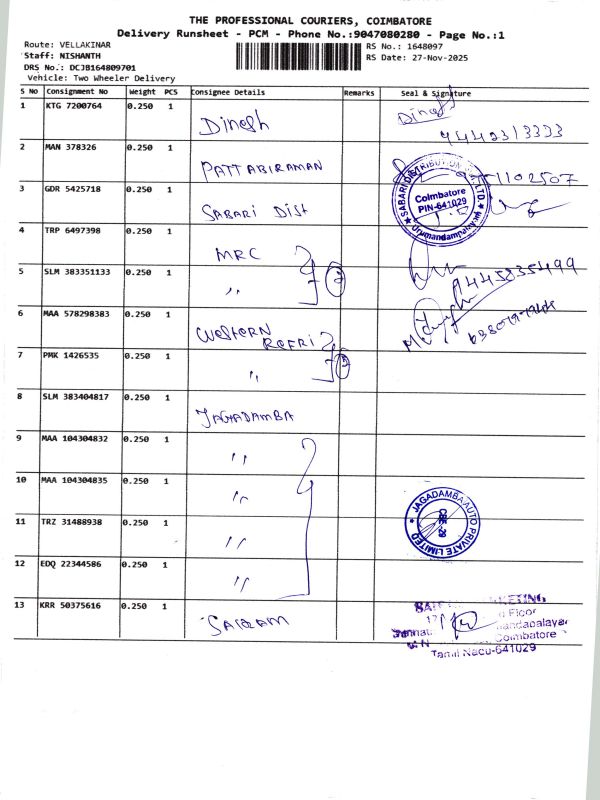 THE PROFESSIONAL COURIERS, COIMBATORE
Delivery Runsheet - PCM - Phone No.:9047080280 - Page No.:1
Route: VELLAKINAR
Staff: NISHANTH
DRS No.: DCJB164809701
Vehicle: Two Wheeler Delivery
RS No.: 1648097
RS Date: 27-Nov-2025
S No Consignment No Weight PCS Consignee Details Remarks Seal & Signature
1 KTG 7200764 0.250 1 Dinesh Dinesh
9442313333
2 MAN 378326 0.250 1 PATTABIRAMAN
3 GDR 5425718 0.250 1 SABARI Dist
SABARI DISTRIBUTION LTD.
Coimbatore
PIN-641029
4 TRP 6497398 0.250 1 MRC
5 SLM 383351133 0.250 1 " 2
9445835499
6 MAA 578298383 0.250 1 WESTERN
REFRI
7 PMK 1426535 0.250 1 "
8 SLM 383404817 0.250 1 JAGADAMBA
9 MAA 104304832 0.250 1 "
10 MAA 104304835 0.250 1 "
11 TRZ 31488938 0.250 1 "
JAGADAMBA AUTO PRIVATE LIMITED
CBE-29
12 EDQ 22344586 0.250 1 "
13 KRR 50375616 0.250 1 SAIRAM
Floor
Coimbatore
Tamil Nadu-641029